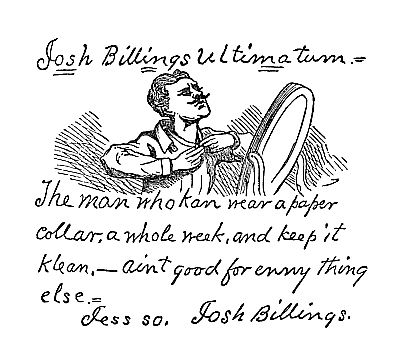 Josh Billings Ultimatum.=
The man who kan wear a paper
collar, a whole week, and keep it
klean,— aint good for enny thing
else.=
Jess so. Josh Billings.